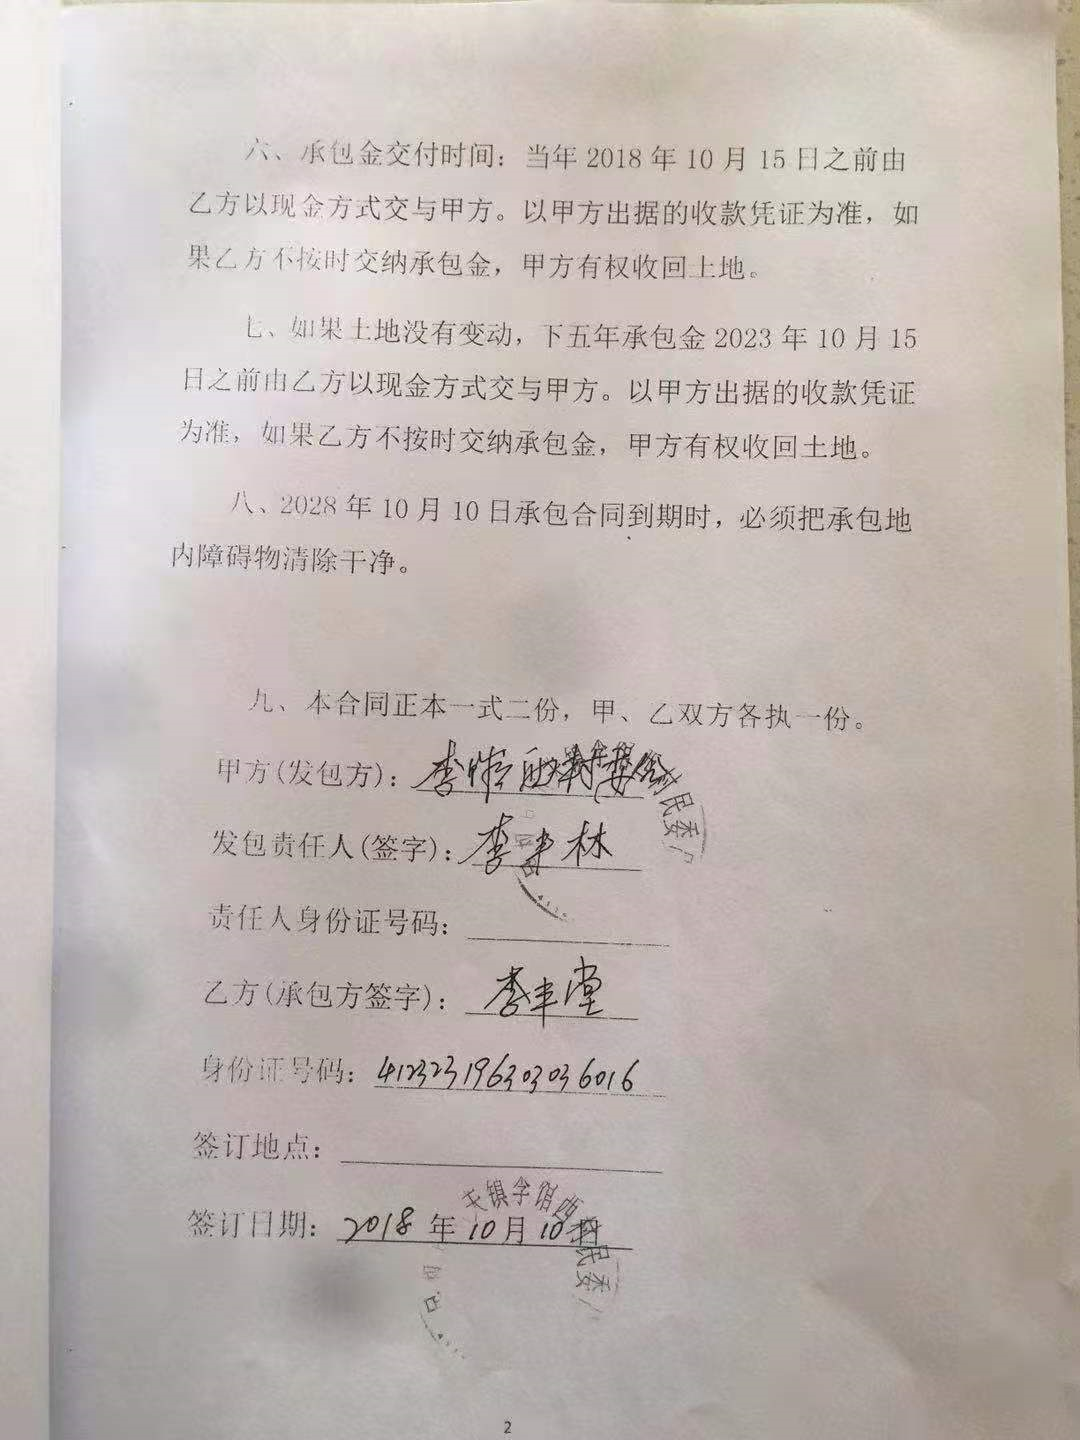 六、承包金交付时间：当年 2018 年 10 月 15 日之前由
乙方以现金方式交与甲方。以甲方出据的收款凭证为准，如
果乙方不按时交纳承包金，甲方有权收回土地。
七、如果土地没有变动，下五年承包金 2023 年 10 月 15
日之前由乙方以现金方式交与甲方。以甲方出据的收款凭证
为准，如果乙方不按时交纳承包金，甲方有权收回土地。
八、2028 年 10 月 10 日承包合同到期时，必须把承包地
内障碍物清除干净。
九、本合同正本一式二份，甲、乙双方各执一份。
甲方(发包方)：李
民委
发包责任人(签字)：李丰林
责任人身份证号码：
乙方(承包方签字)：李丰堂
身份证号码：412323196303036016
签订地点：
镇孪馆西
签订日期：2018 年 10 月 10 日
民委
2